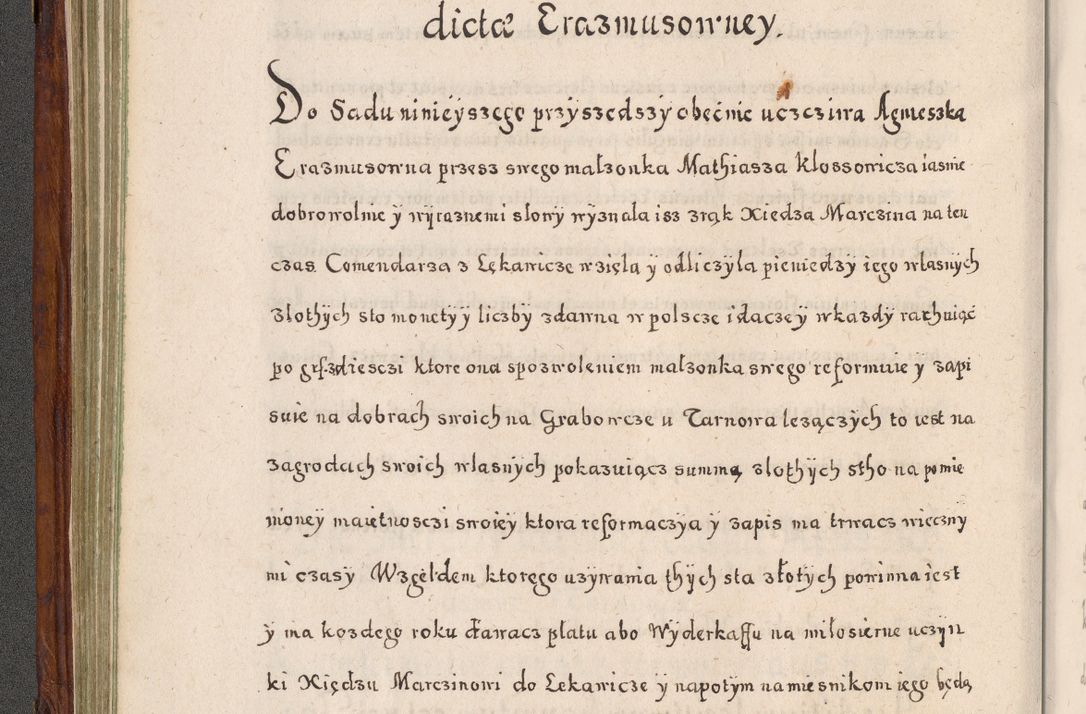 dictæ Erazmusowney.
Do Sadu ninieyszego przyszedszy obecnie uczciwa Agnieszka
Erazmusowna przesz swego malzonka Mathiasza Klossowicza iasnie
dobrowolnie y wyraznemi slowy wyznala isz zrąk Xiedza Marczina na ten
czas Comendarza z Lękawicze wzięla y odliczyla pieniedzy iego wlasnych
zlothych sto monety y liczby zdawna w polscze idaczey wkazdy rachuiąc
po grosz 30dziesczi ktore ona spozwoleniem malzonka swego reformuie y zapi
suie na dobrach swoich na Grabowcze u Tarnowa lezączych to iest na
zagrodach swoich wlasnych pokazuiącz summą zlothych stho na pomie
nioney maietnosczi swoiey ktora reformaczya y zapis ma trwacz wieczny
mi czasy Wzgełdem ktorego uzywania thych sta złotych powinna iest
y ma kozdego roku dawacz platu abo Wyderkaffu na miłosierne uczyn
ki Xiędzu Marczinowi do Lekawicze y napotym namiesnikom iego będą